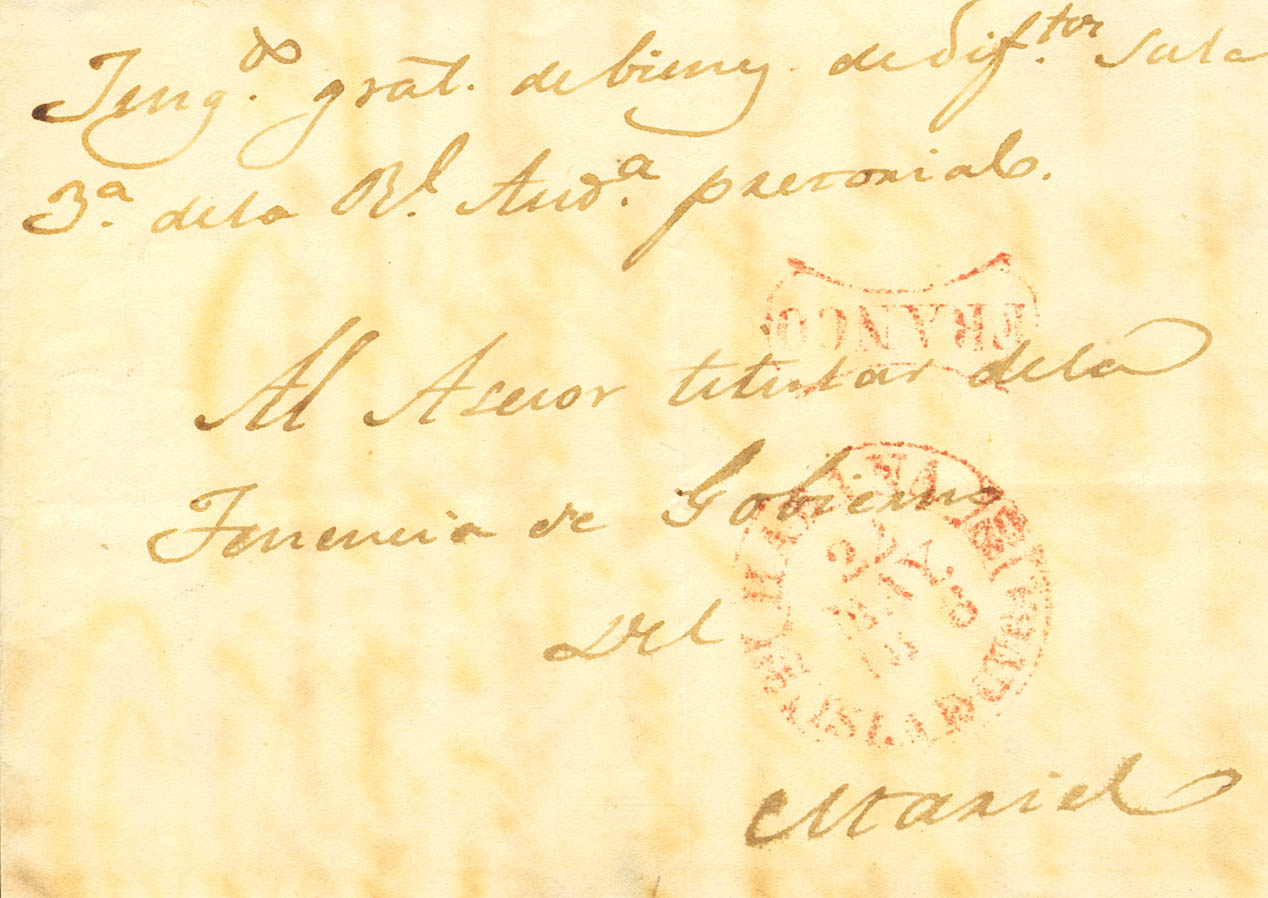 Juzg.do gral. de bienes de dif.tos Sala
3.a dela Rl. Aud.a pretorial.
FRANCO
Al Asesor titular dela
Tenencia de Gobierno
del
HABANA
ISLA DE CUBA
Mariel